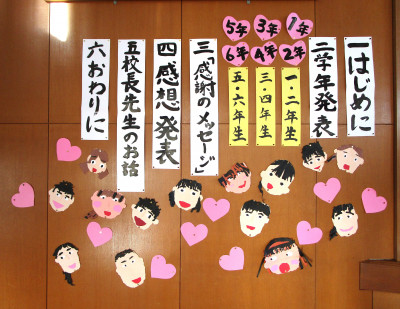 一はじめに
二学年発表
1年
2年
一・二年生
3年
4年
三・四年生
5年
6年
五・六年生
三「感謝のメッセージ」
四感想発表
五校長先生のお話
六おわりに